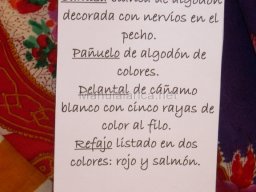 Camisa blanca de algodón
decorada con nervios en el
pecho.
Pañuelo de algodón de
colores.
Delantal de cáñamo
blanco con cinco rayas de
color al filo.
Refajo listado en dos
colores: rojo y salmón.